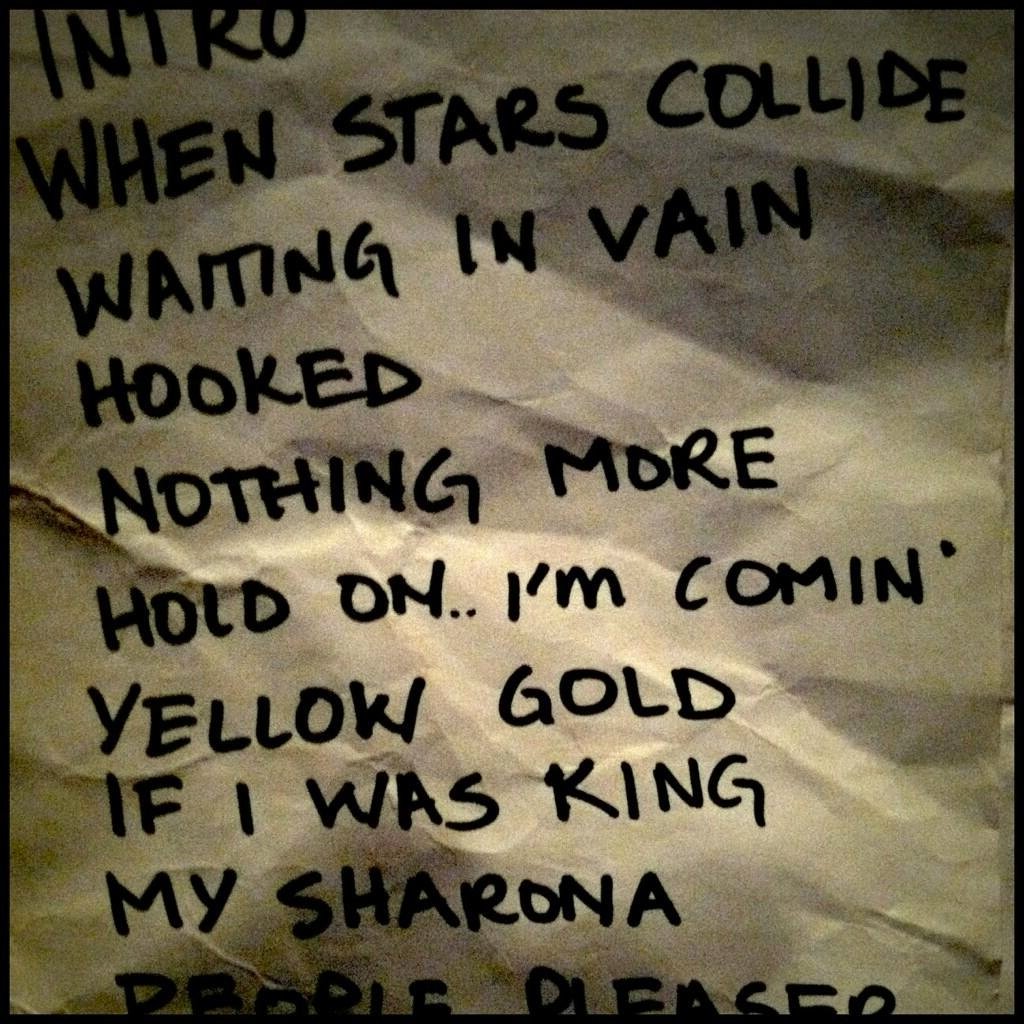 INTRO
WHEN STARS COLLIDE
WAITING IN VAIN
HOOKED
NOTHING MORE
HOLD ON.. I'M COMIN'
YELLOW GOLD
IF I WAS KING
MY SHARONA
PEOPLE PLEASER